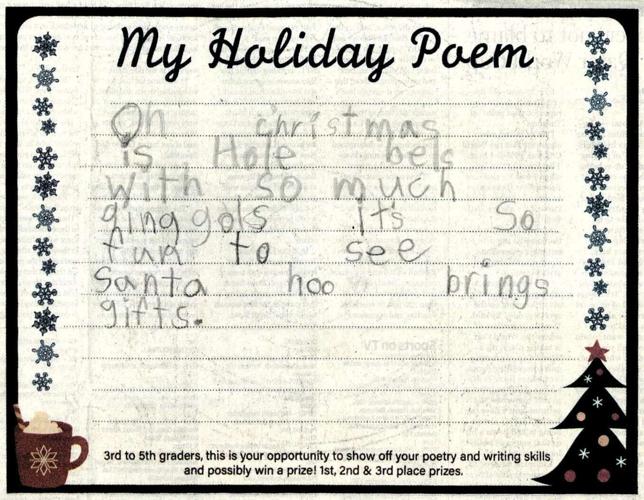 My Holiday Poem
Oh christmas
is Hole bels
with so much
ginggols it's So
fun to see
Santa hoo brings
gifts.
3rd to 5th graders, this is your opportunity to show off your poetry and writing skills
and possibly win a prize! 1st, 2nd & 3rd place prizes.